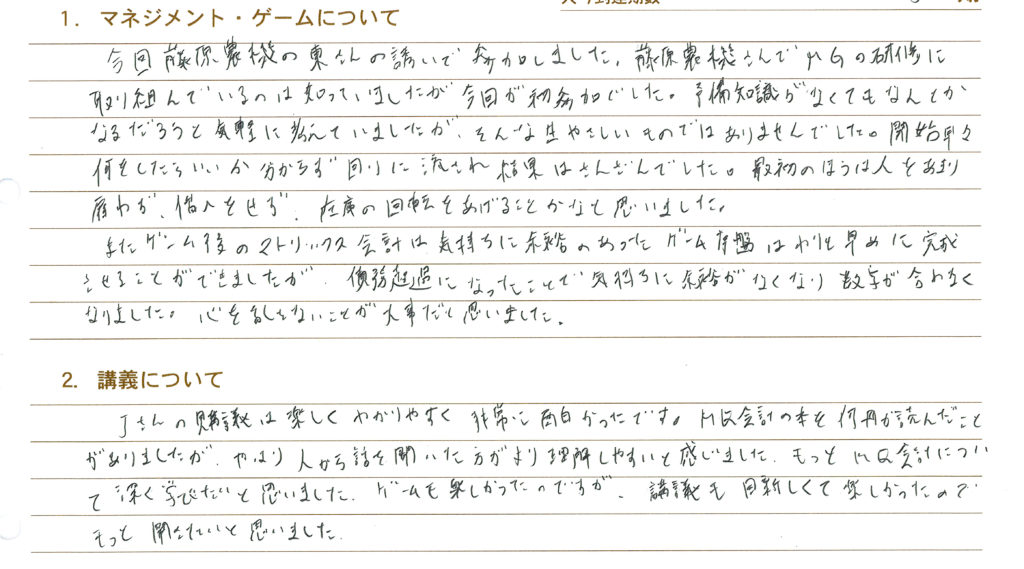 1. マネジメント・ゲームについて
今回藤原農機の東さんの誘いで参加しました。藤原農機さんでMGの研修に
取り組んでいるのは知っていましたが今回が初参加でした。予備知識がなくてもなんとか
なるだろうと気軽に考えていましたが、そんな生やさしいものではありませんでした。開始早々
何をしたらいいか分からず回りに流され結果はさんざんでした。最初のほうは人をあまり
雇わず、借入をせず、在庫の回転をあげることかなと思いました。
またゲーム後のマトリックス会計は気持ちに余裕のあったゲーム序盤はわりと早めに完成
させることができましたが、債務超過になったことで気持ちに余裕がなくなり数字が合わなく
なりました。心を乱さないことが大事だと思いました。
2. 講義について
Jさんの講義は楽しくわかりやすく非常に面白かったです。MQ会計の本を何冊か読んだこと
がありましたが、やはり人から話を聞いた方がより理解しやすいと感じました。もっとMQ会計につい
て深く学びたいと思いました。ゲームも楽しかったのですが、講義も目新しくて楽しかったので
もっと聞きたいと思いました。